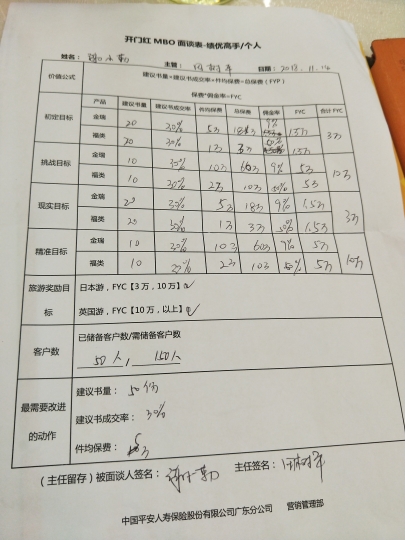 开门红 MBO 面谈表-绩优高手/个人
姓名： 主管： 日期：2017.11.14
价值公式 建议书量*建议书成交率*件均保费=总保费（FYP）
保费*佣金率=FYC
产品 建议书量 建议书成交率 件均保费 总保费 佣金率 FYC 合计 FYC
初定目标 金瑞 20 30% 5万 18万 9% 1.5万 3万
福类 20 30% 1万 3万 50% 1.5万
挑战目标 金瑞 10 30% 10万 60万 9% 5万 10万
福类 10 30% 2万 10万 50% 5万
现实目标 金瑞 20 30% 5万 18万 9% 1.5万 3万
福类 20 30% 1万 3万 50% 1.5万
精准目标 金瑞 10 30% 10万 60万 9% 5万 10万
福类 10 30% 2万 10万 50% 5万
旅游奖励目标 日本游，FYC【3 万，10 万】√
英国游，FYC【10 万，以上】√
客户数 已储备客户数/需储备客户数
50人， 150人
最需要改进的动作
建议书量： 50份
建议书成交率： 30%
件均保费： 万
（主任留存）被面谈人签名： 主任签名：
中国平安人寿保险股份有限公司广东分公司 营销管理部